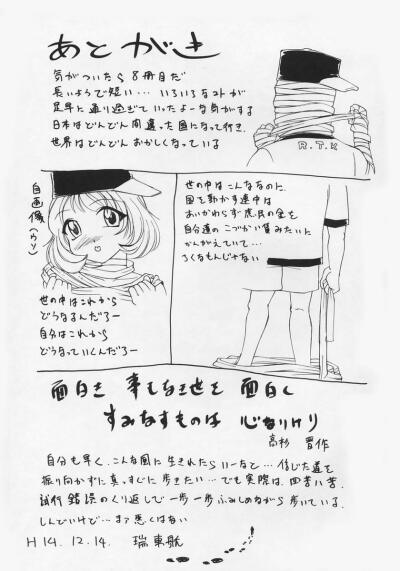 あとがき
気がついたら8冊目だ
長いようで短い…いろいろなコトが
足早に通り過ぎていったよーな気がする
日本はどんどん間違った国になって行き、
世界はどんどんおかしくなっている
R.T.K
自画像(ウソ)
世の中はこれから
どうなるんだろー
自分はこれから
どうなっていくんだろー
世の中はこんななのに、
国を動かす連中は
あいかわらず庶民の金を
自分達のこづかい箕みたいに
かんがえていて…
ろくなもんじゃない
面白き 事もなき世を 面白く
すみなすものは 心なりけり
高杉 晋作
自分も早く、こんな風に生きれたらいーなと…信じた道を
振り向かずに真っすぐに歩きたい…でも実際は、四苦八苦。
試行錯誤のくり返しで一歩一歩ふみしめながら歩いている。
しんどいけど…まァ悪くはない
H14.12.14. 瑞東航